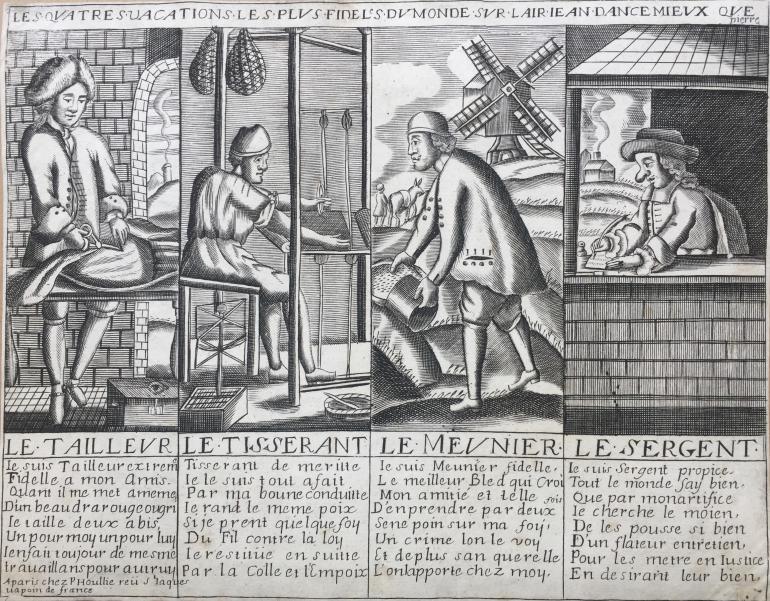 LES QVATRES VACATIONS LES PLUS FIDELS DV MONDE SUR LAIR IEAN DANCE MIEUX QUE
pierre
LE TAILLEVR
Ie suis Tailleur extrem
Fidelle a mon Amis.
Quant il me met amem
D'un beau drap rouge ou gri
Ie taille deux abis,
Un pour moy un pour luy
Ien fait toujour de mesme
travaillans pour autruy
Aparis chez P Houllie reü S Iaques
va poin de france
LE TISSERANT
Tisserant de meritte
Ie le suis tout afait
Par ma boune conduitte
Ie rand le meme poix
Si je prent quelque foy
Du Fil contre la loy
Ie restitüe en suitte
Par la Colle et l'Empoix
LE MEVNIER
Ie suis Meunier fidelle,
Le meilleur Bled qui Croi
Mon amitié et telle fois
D'enprendre par deux
Sene poin sur ma foy,
Un crime lon le voy
Et de plus san querelle
L'on lapporte chez moy,
LE SERGENT
Ie suis Sergent propice,
Tout le monde say bien,
Que par mon artifice
Ie cherche le moien,
De les pousse si bien
D'un flateur entretien,
Pour les metre en Iustice
En desirant leur bien,